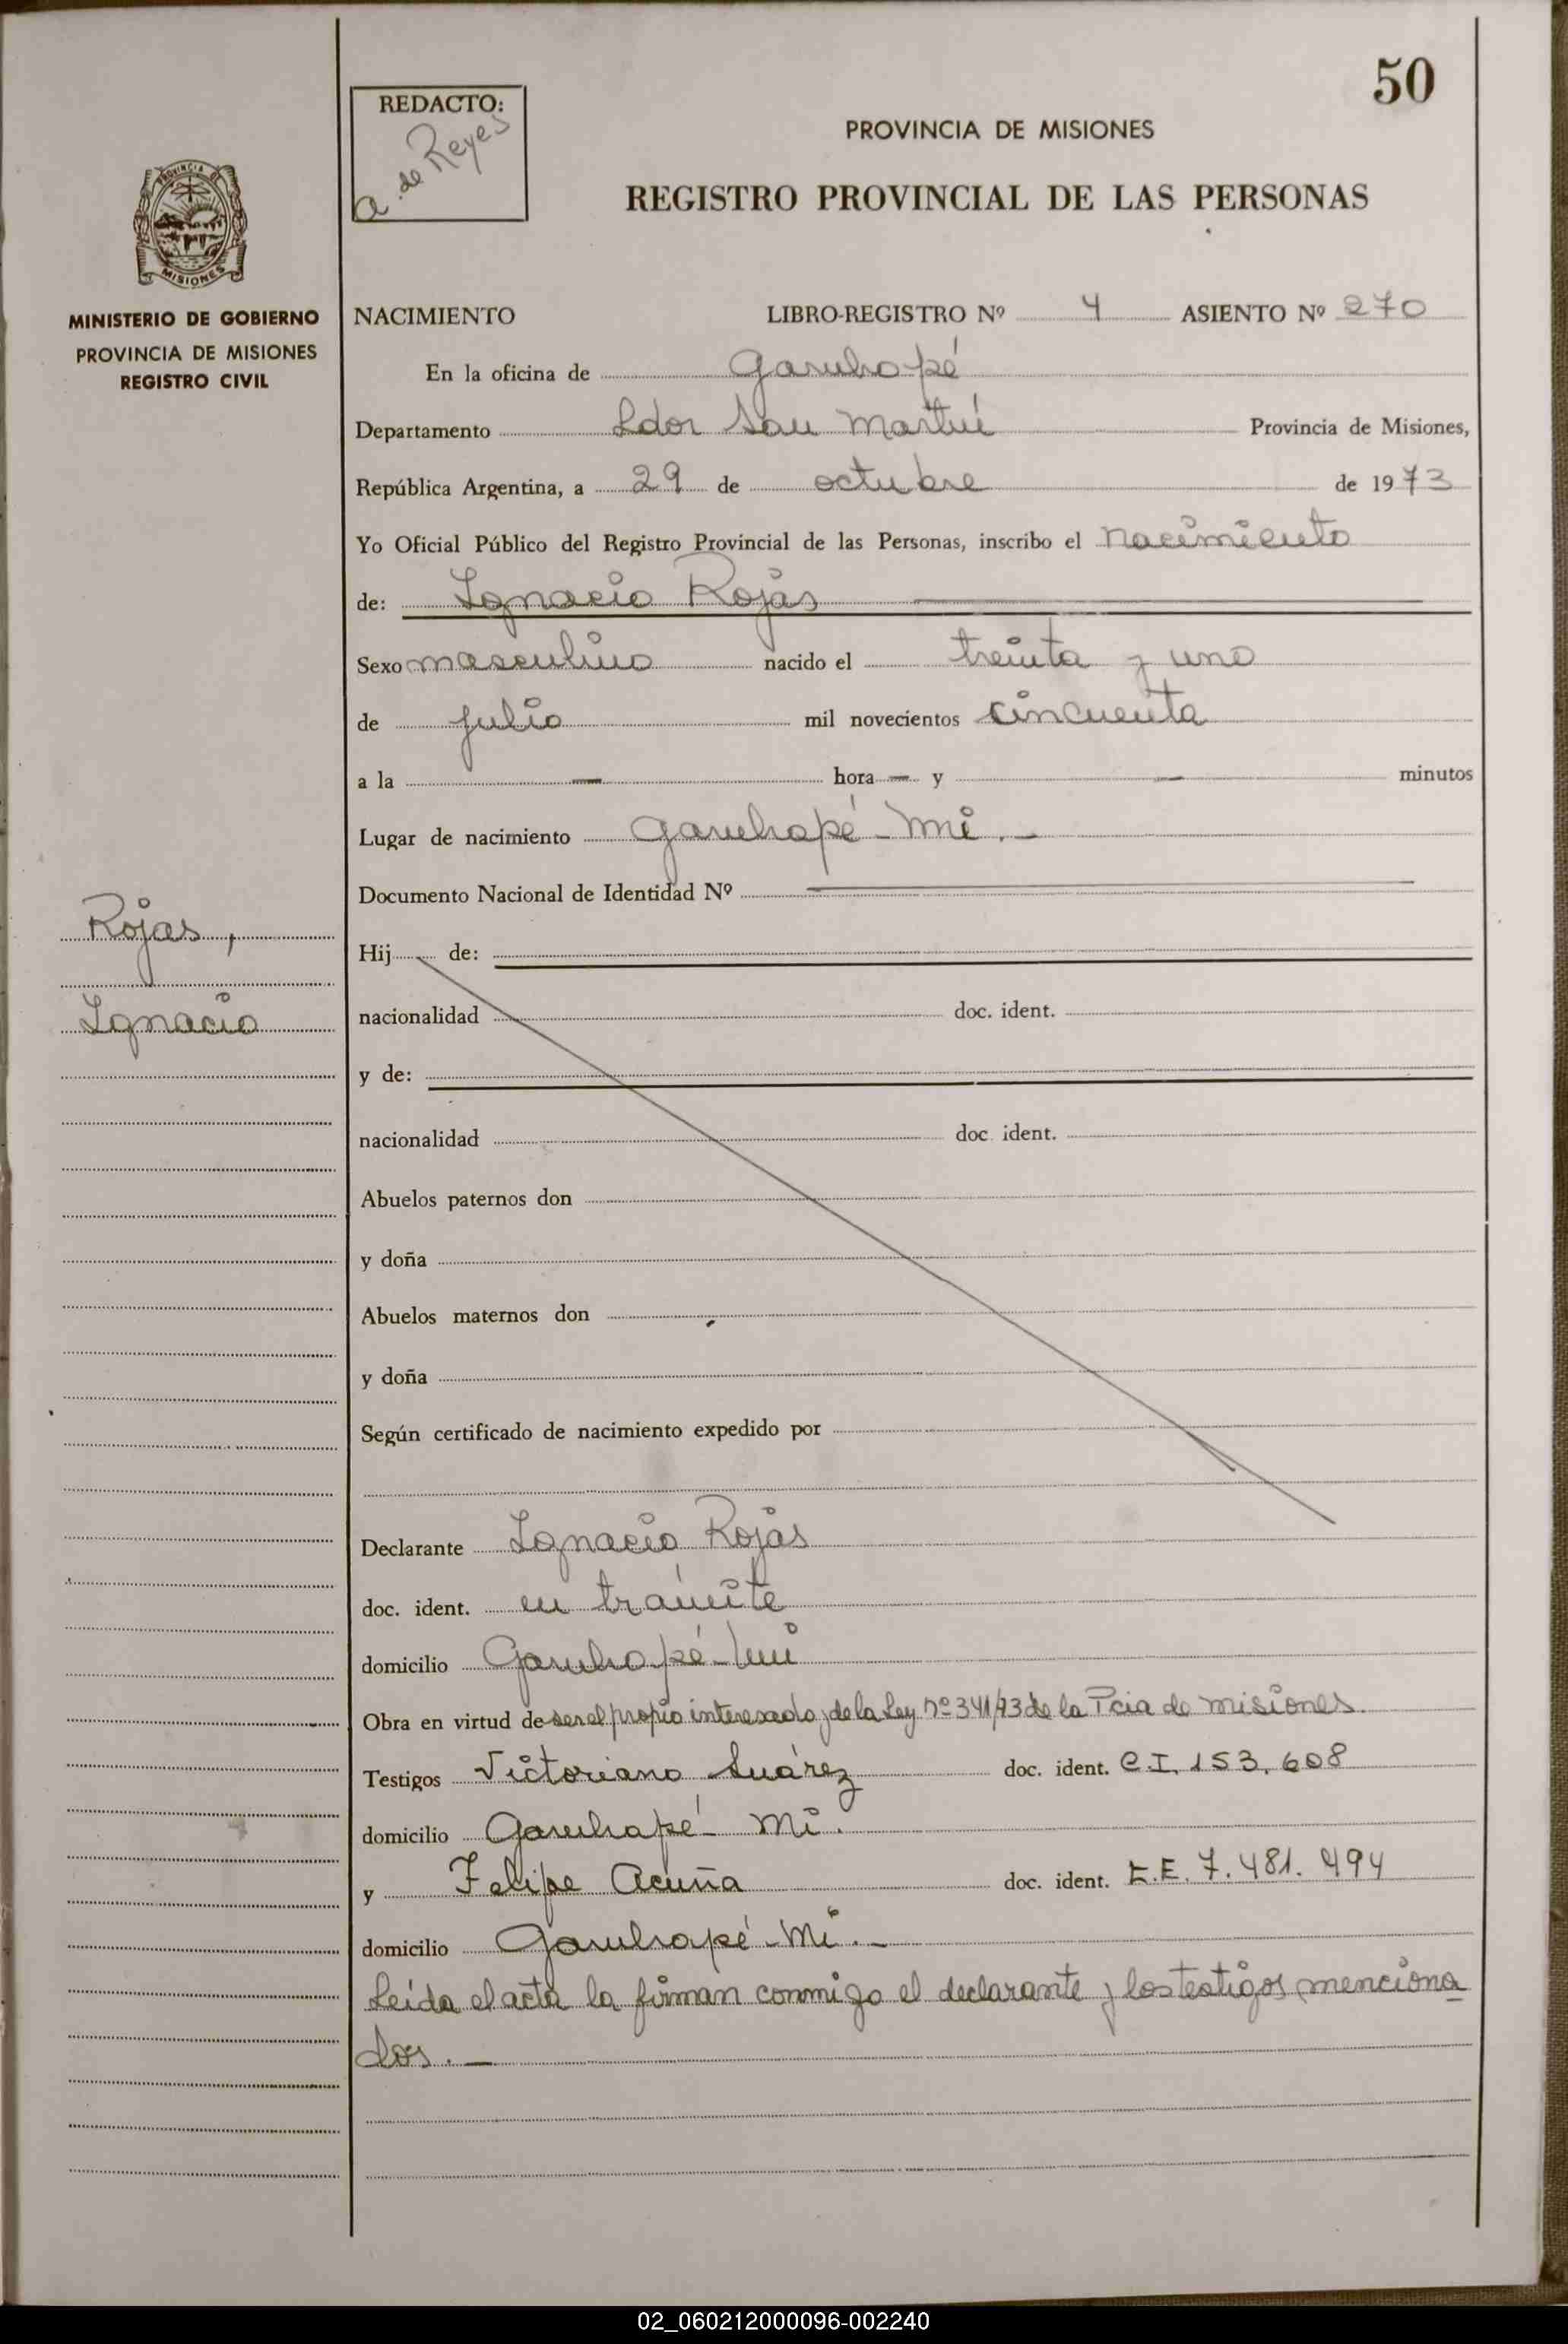 50
REDACTO:
a. de Reyes
PROVINCIA DE MISIONES
REGISTRO PROVINCIAL DE LAS PERSONAS
PROVINCIA DE
MISIONES
MINISTERIO DE GOBIERNO
PROVINCIA DE MISIONES
REGISTRO CIVIL
NACIMIENTO LIBRO-REGISTRO Nº 4 ASIENTO Nº 270
En la oficina de Garuhapé
Departamento Ldor San Martín Provincia de Misiones,
República Argentina, a 29 de octubre de 1973
Yo Oficial Público del Registro Provincial de las Personas, inscribo el nacimiento
de: Ignacio Rojas
Sexo masculino nacido el treinta y uno
de julio mil novecientos cincuenta
a la — hora — y — minutos
Lugar de nacimiento Garuhapé - Mi. —
Documento Nacional de Identidad Nº
Rojas,
Ignacio
Hij de:
nacionalidad doc. ident.
y de:
nacionalidad doc. ident.
Abuelos paternos don
y doña
Abuelos maternos don
y doña
Según certificado de nacimiento expedido por
Declarante Ignacio Rojas
doc. ident. en trámite
domicilio Garuhapé - Mi
Obra en virtud de ser el propio interesado y de la Ley nº 341/73 de la Pcia de Misiones.
Testigos Victoriano Suárez doc. ident. C.I. 153.608
domicilio Garuhapé - Mi.
y Felipe Acuña doc. ident. L.E. 7.481.494
domicilio Garuhapé - Mi. —
Leída el acta la firman conmigo el declarante y los testigos menciona
dos. —
02_060212000096-002240